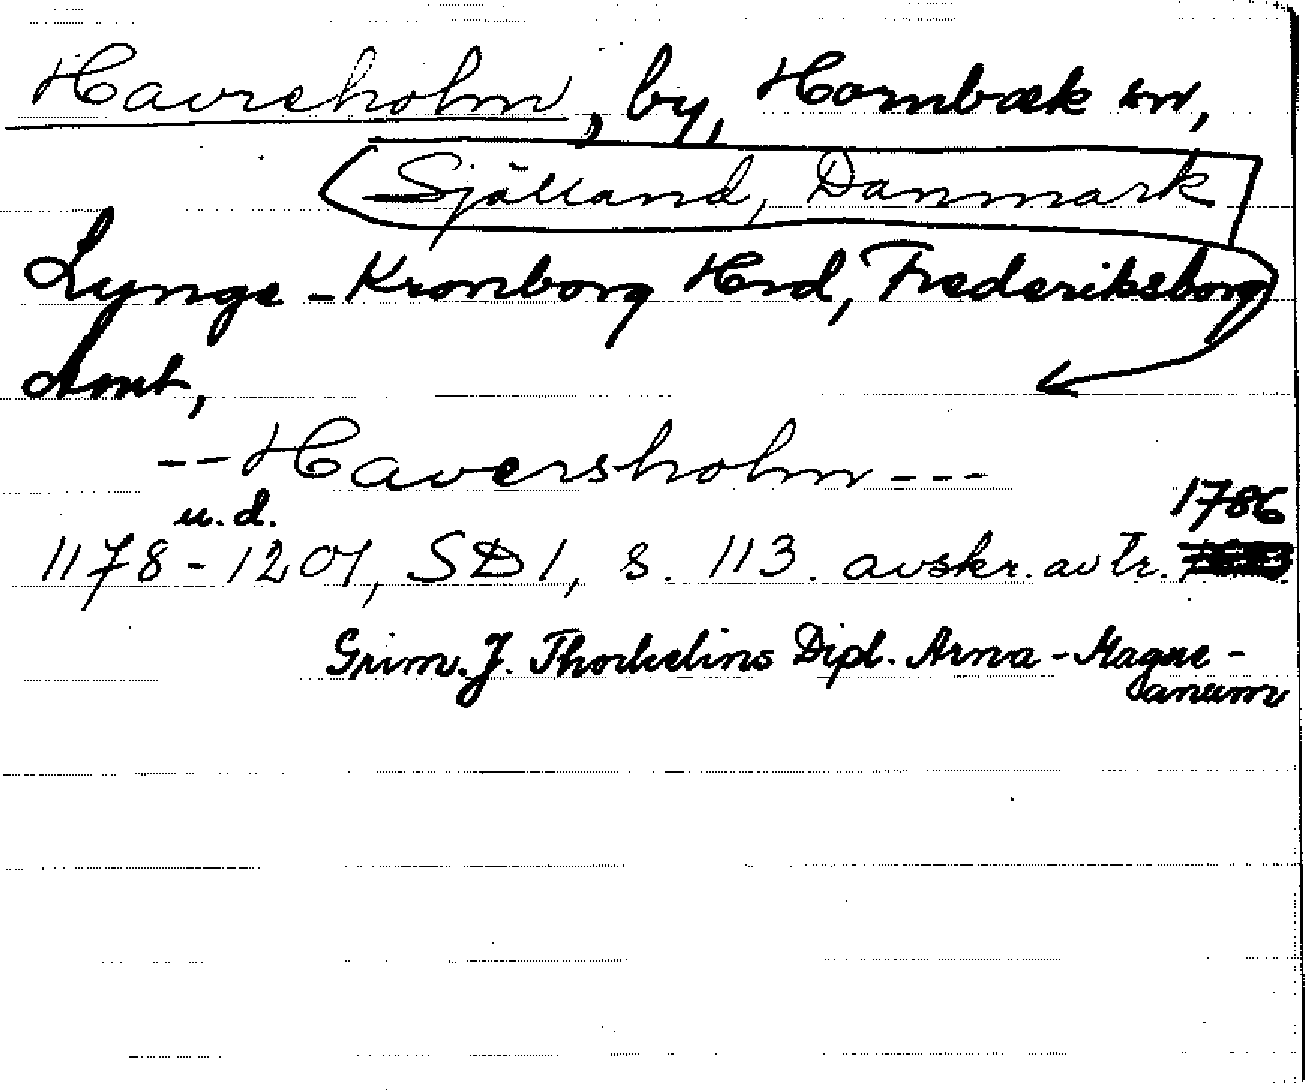 Havreholm, by, Hornbæk sn,
Själland, Danmark
Lynge-Kronborg Hrd, Frederiksborg
Amt,
-- Haversholm ---
u.d.
1786
1178-1201, SD 1, s. 113. avskr. av tr.
Grim. J. Thorkelins Dipl. Arna-Magne-
anum